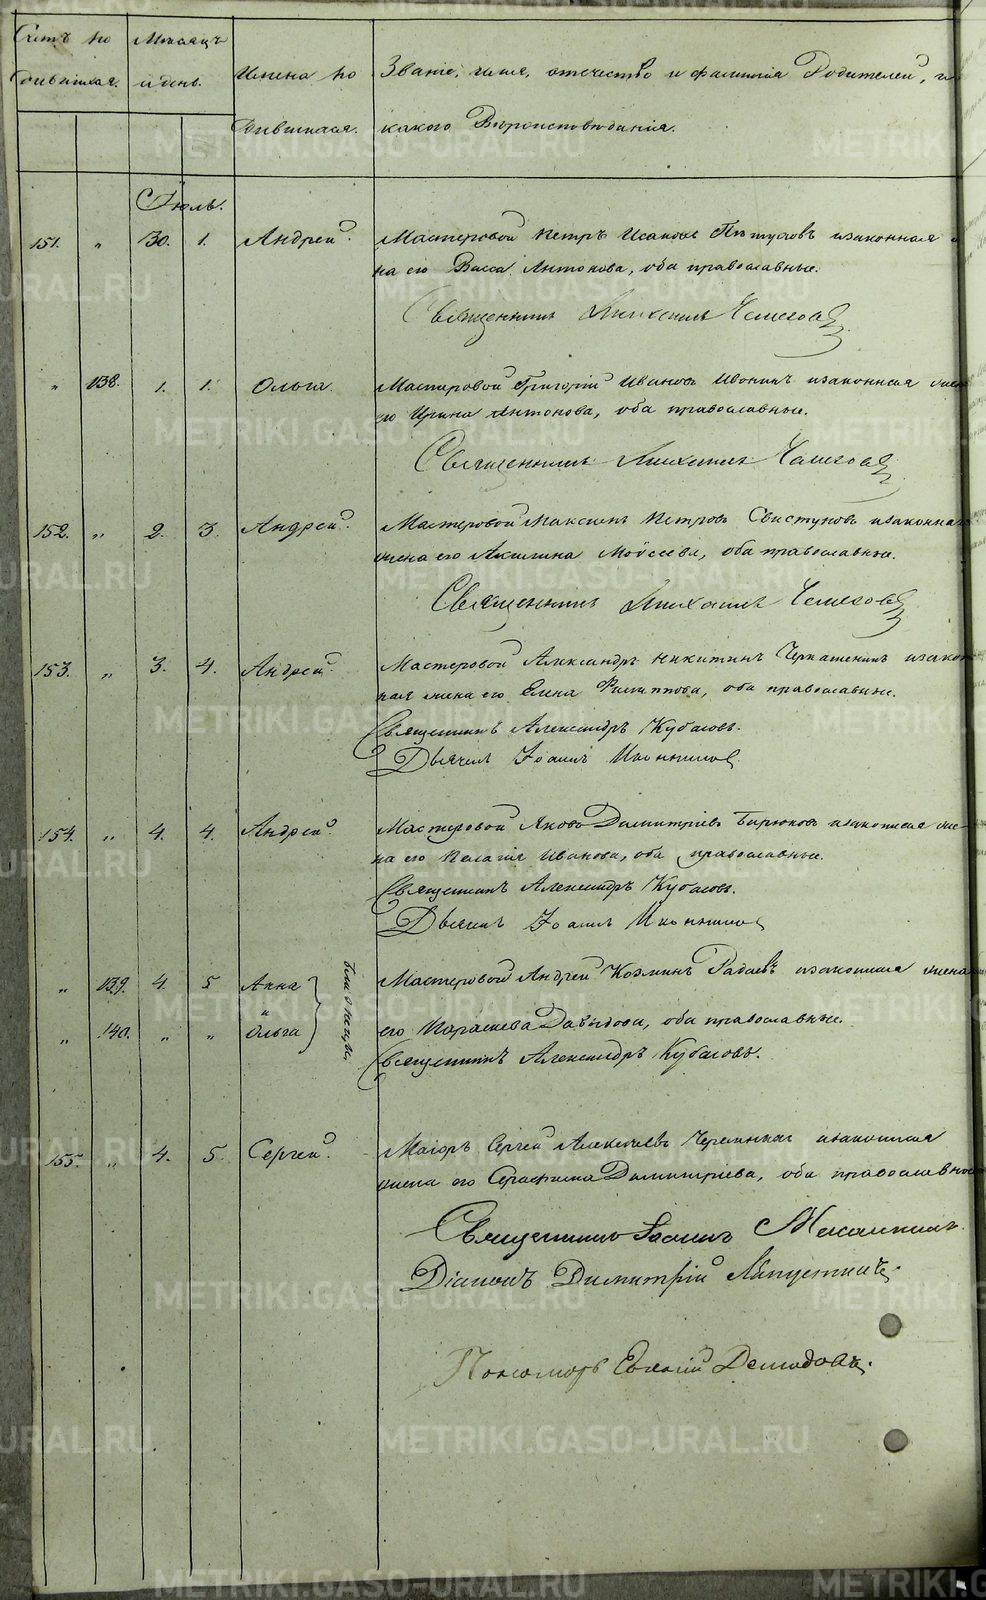 Счетъ ро
дившихся.
Месяцъ
и день.
Имена ро
дившихся.
Званіе, имя, отчество и фамилія Родителей, и
какого Вероисповеданія.
Іюль.
151. „ 30. 1. Андрей. Мастеровой Петръ Исаковъ Петуховъ и законная
на его Васса Антонова, оба православные.
Священникъ Михаилъ
„ 138. 1. 1. Ольга. Мастеровой Григорій Ивановъ Ивонинъ и законная жена
его Ирина Антонова, оба православные.
Священникъ Михаилъ
152. „ 2. 3. Андрей. Мастеровой Максимъ Петровъ Свистуновъ и законная
жена его Акилина Моѵсеева, оба православные.
Священникъ Михаилъ
153. „ 3. 4. Андрей. Мастеровой Александръ Никитинъ Черкашенинъ и закон
ная жена его Елена Филиппова, оба православные.
Священникъ Александръ Кубасовъ.
Дьячекъ Іоаннъ
154. „ 4. 4. Андрей. Мастеровой Яковъ Димитріевъ Бирюковъ и законная же
на его Пелагія Иванова, оба православные.
Священникъ Александръ Кубасовъ.
Дьячекъ Іоаннъ
„ 139. 4. 5 Анна Мастеровой Андрей Козминъ и законная жена
и
„ 140. „ „ Ольга его Параскева Давыдова, оба православные.
близнецы
Священникъ Александръ Кубасовъ.
155. „ 4. 5. Сергей. Маіоръ Сергей Алексеевъ и законная
жена его Серафима Димитріева, оба православные
Священникъ Іоаннъ
Діаконъ Димитрій
Пономарь Евгеній Демидовъ.
METRIKI.GASO-URAL.RU